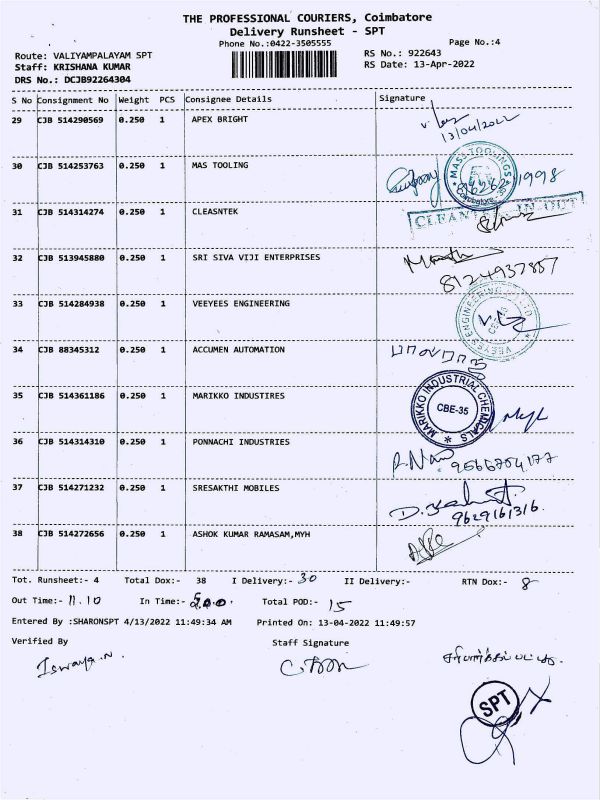 THE PROFESSIONAL COURIERS, Coimbatore
Delivery Runsheet - SPT
Phone No.:0422-3505555
Page No.:4
Route: VALIYAMPALAYAM SPT
RS No.: 922643
Staff: KRISHANA KUMAR
RS Date: 13-Apr-2022
DRS No.: DCJB92264304
S No Consignment No Weight PCS Consignee Details Signature
29 CJB 514290569 0.250 1 APEX BRIGHT
13/04/2022
30 CJB 514253763 0.250 1 MAS TOOLING
MAS TOOLINGS
Coimbatore
31 CJB 514314274 0.250 1 CLEASNTEK
32 CJB 513945880 0.250 1 SRI SIVA VIJI ENTERPRISES
8124937857
33 CJB 514284938 0.250 1 VEEYEES ENGINEERING
34 CJB 88345312 0.250 1 ACCUMEN AUTOMATION
35 CJB 514361186 0.250 1 MARIKKO INDUSTIRES
MARIKKO INDUSTRIAL CHEMICALS
CBE-35
36 CJB 514314310 0.250 1 PONNACHI INDUSTRIES
37 CJB 514271232 0.250 1 SRESAKTHI MOBILES
9629161316.
38 CJB 514272656 0.250 1 ASHOK KUMAR RAMASAM,MYH
Tot. Runsheet:- 4 Total Dox:- 38 I Delivery:- 30 II Delivery:- RTN Dox:- 8
Out Time:- 11.10 In Time:- Total POD:- 15
Entered By :SHARONSPT 4/13/2022 11:49:34 AM Printed On: 13-04-2022 11:49:57
Verified By Staff Signature
சரிபார்க்கப்பட்டது.
SPT